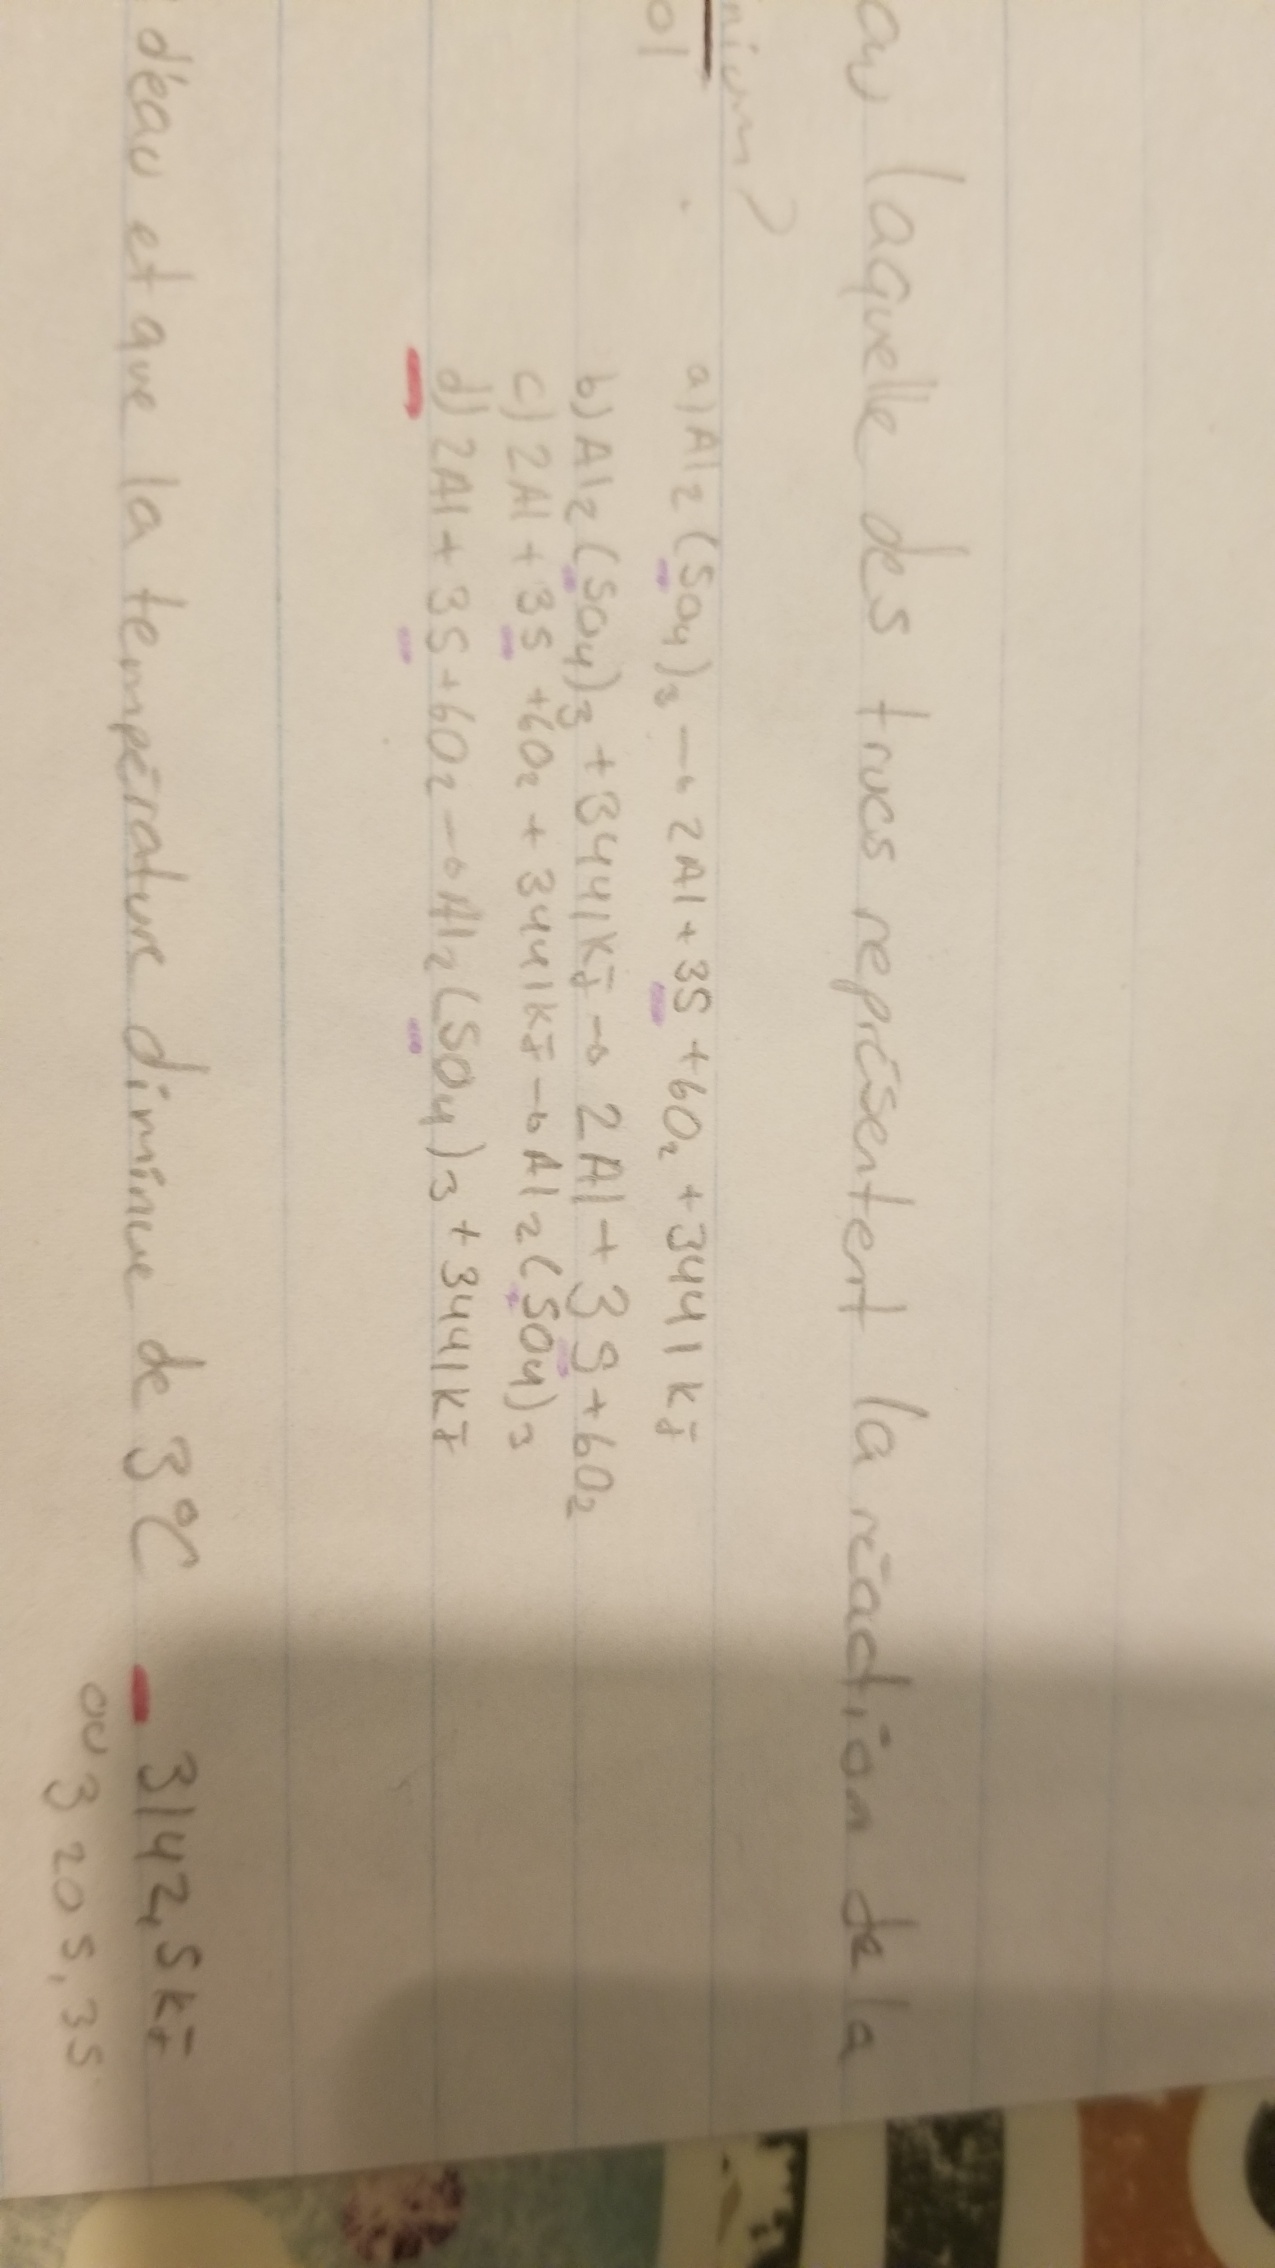 ou laquelle des trucs représentent la réaction de la
nium?
ol
a) Al2(SO4)3 → 2Al + 3S + 6O2 + 3441 kJ
b) Al2(SO4)3 + 3441 kJ → 2Al + 3S + 6O2
c) 2Al + 3S + 6O2 + 3441 kJ → Al2(SO4)3
d) 2Al + 3S + 6O2 → Al2(SO4)3 + 3441 kJ
d'eau et que la température diminue de 3°C - 3142,5 kJ
ou 3205,35